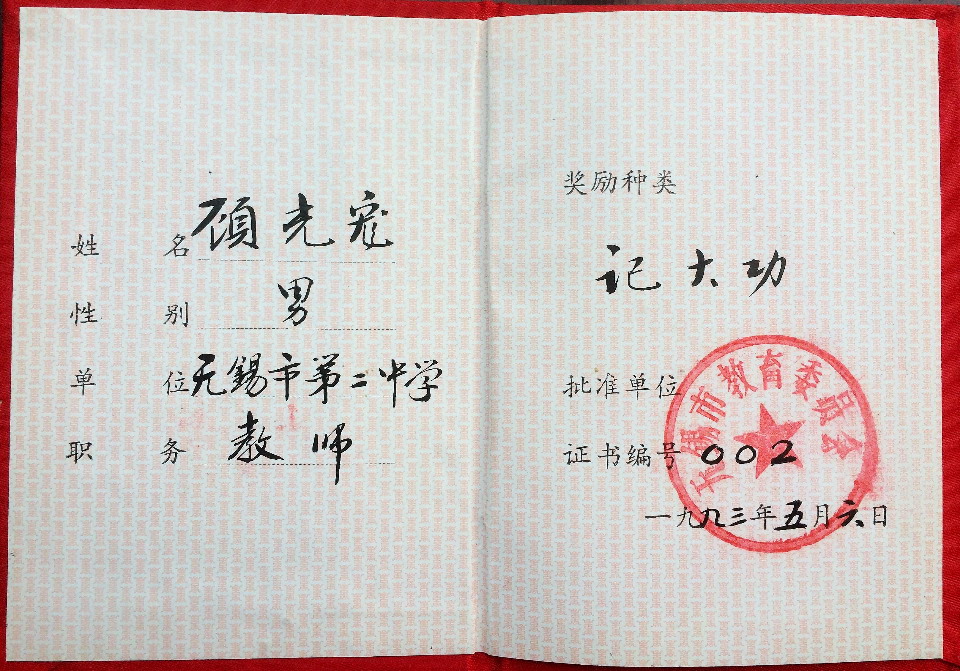 姓名 顾光宠
性别 男
单位 无锡市第二中学
职务 教师
奖励种类
记大功
批准单位
无锡市教育委员会
证书编号 002
一九九三年五月六日